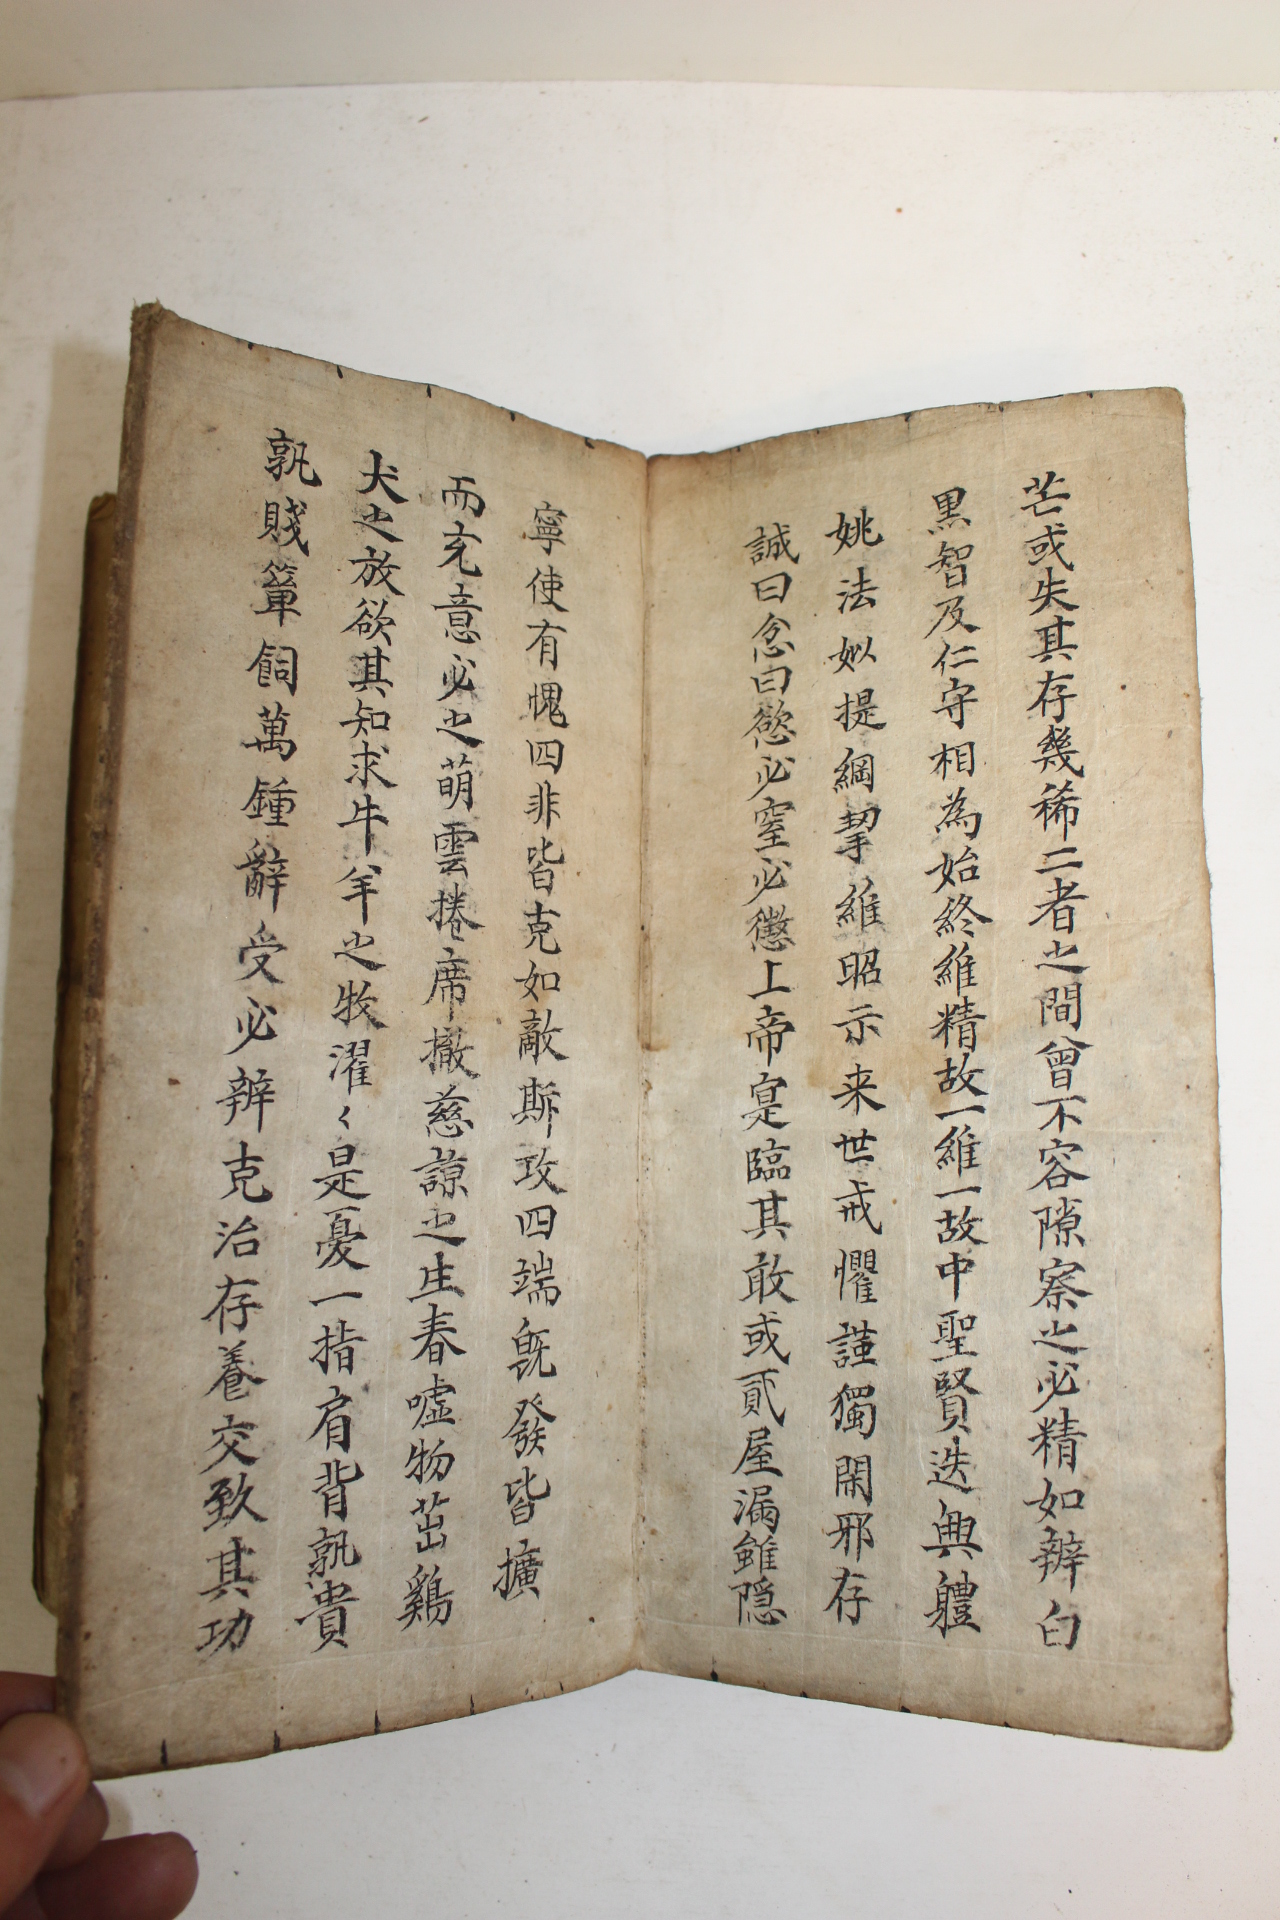 芒或失其存幾稀二者之間曾不容隙察之必精如辨白
黒智及仁守相為始終維精故一維一故中聖賢迭興軆
姚法姒提綱挈維昭示来世戒懼謹獨閑邪存
誠曰忿曰慾必窒必懲上帝寔臨其敢或貳屋漏雖隠
寧使有愧四非皆克如敵斯攻四端旣發皆擴
而充意必之萌雲捲席撤慈諒之生春噓物茁鷄
犬之放欲其知求牛羊之牧濯〻是憂一指肩背孰貴
孰賤簞飼萬鍾辭受必辨克治存養交致其功